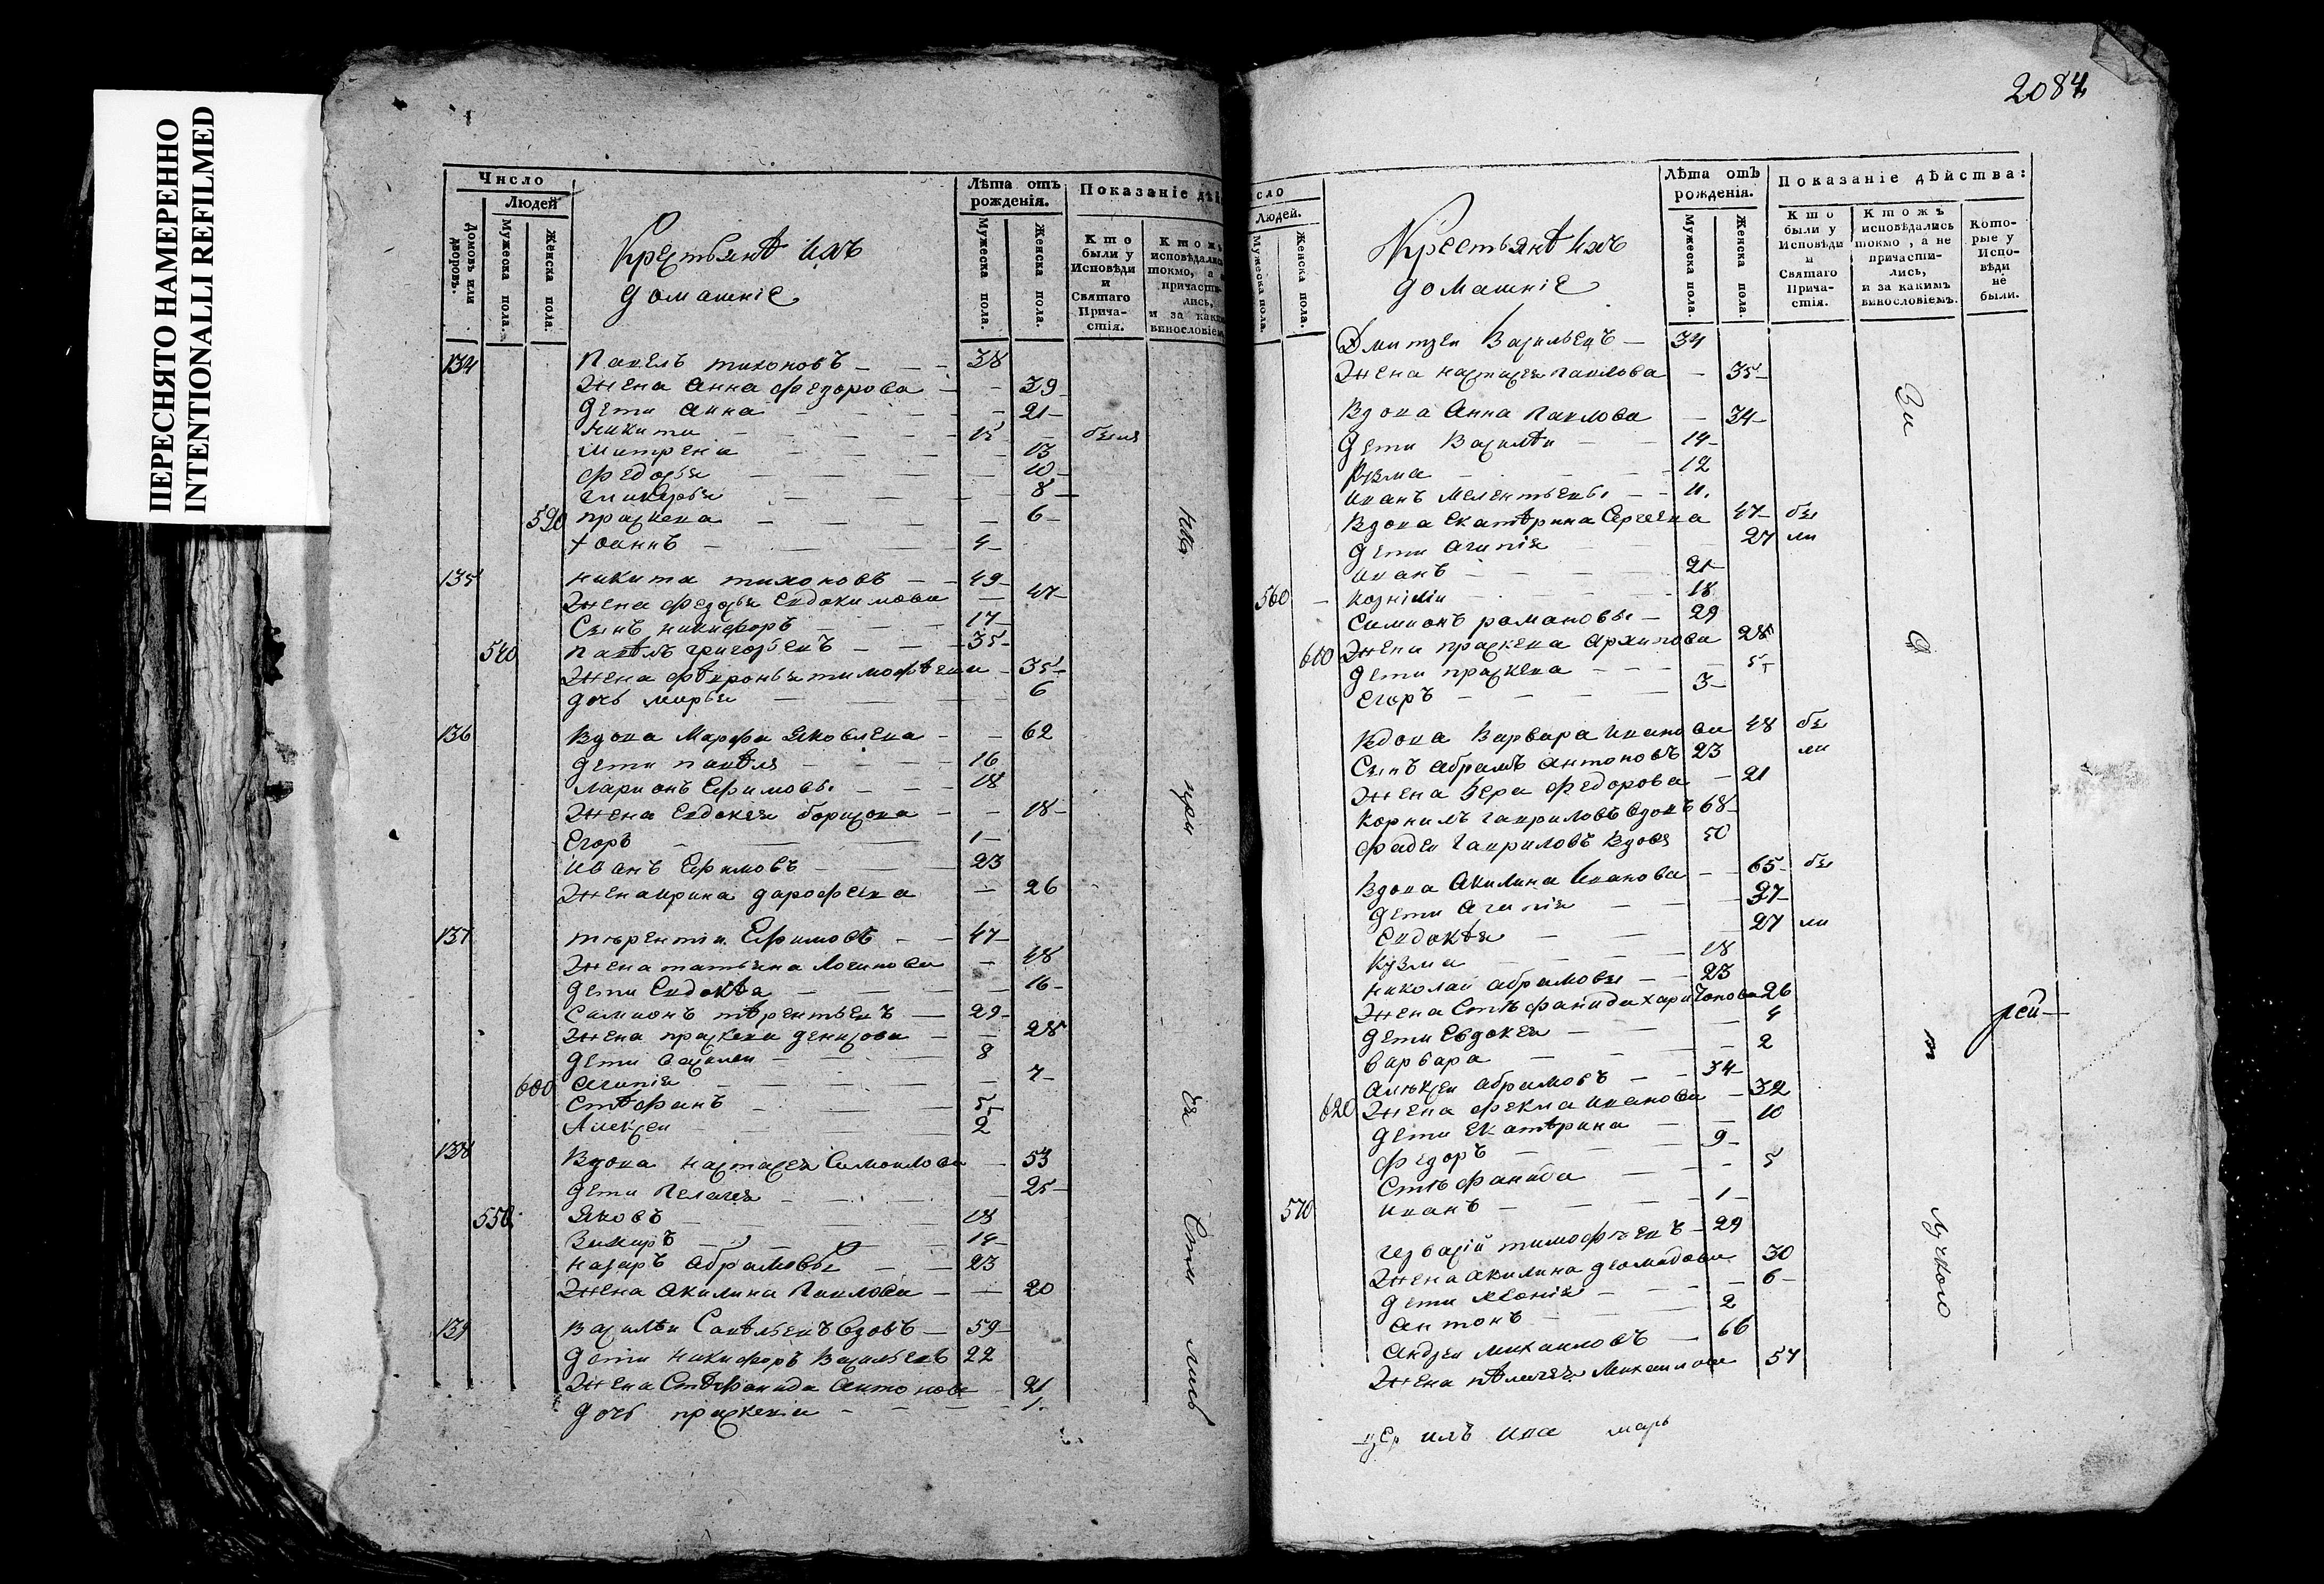 ПЕРЕСНЯТО НАМЕРЕННО
INTENTIONALLI REFILMED
Число
Людей
Домовъ или дворовъ.
Мужеска пола.
Женска пола.
Крестьянѣ ихъ
домашніе
Лѣта отъ рожденія.
Мужеска пола.
Женска пола.
Показаніе дѣй
Кто были у Исповѣди и Святаго Прича-стія.
134 Павелъ тихоновъ 38
Жена Анна Федорова 39
дети Анна 21
Никита были
Матрена 13
Федосья 10
Гликерья 8
590 праскева 6
Іоаннъ 4
135 никита тихоновъ 49
Жена Федосья Евдокимова 47
Сынъ никифоръ 17
540 павѣлъ григорьевъ 35
Жена Фѣвронья тимофѣева 35
дочь марья 6
136 Вдова Марфа Яковлева 62
дети павѣлъ 16
ларионъ Ефимовы 18
Жена Евдокея борисова 18
Егоръ 1
Иванъ Ефимовъ 23
Жена ирина дарофеева 26
137 терентіи Ефимовъ 47
Жена татьяна Логинова 48
дети Евдокѣя 16
Симионъ тѣрентьевъ 29
Жена праскева денисова 28
дети василеи 8
600 агапія 7
Стѣфанъ 5
Алексеи 2
138 Вдова настасея Самоилова 53
дети Пелагея 25
550 Яковъ 18
14
назаръ абрамовы 23
Жена Акилина Павлова 20
139 Василѣи Савѣльевъ вдовъ 59
дети никифоръ Васильевъ 22
Жена Стѣфанида антонова 21
дочь праскевия 1
при
ча
сти
лись
2084
Людей.
Мужеска пола.
Женска пола.
Крестьянѣ ихъ
домашніе
Лѣта отъ рожденія.
Мужеска пола.
Женска пола.
Показаніе дѣйства:
Кто были у Исповѣди и Святаго Прича-стія.
Ктожъ исповѣдались токмо, а не причасти-лись, и за какимъ винословіемъ.
Кото-рые у Испо-вѣди не были.
Дмитреи Васильевъ 34
Жена настасея павлова 35
Вдова Анна Павлова 34
дети Василѣи 14
Кузма 12
иванъ мелентьевы 11
Вдова Екатѣрина Сергеева 47 бы
дети агапія 27 ли
иванъ 21
560 18
Симионъ романовы 29
610 Жена праскева архипова 28
дети праскева 5
Егоръ 3
Вдова Варвара иванова 48 бы
Сынъ абрамъ антоновъ 23 ли
Жена Вера Федорова 21
Корнилъ гавриловъ вдовъ 68
Фадеи гавриловъ 50
Вдова Акилина иванова 65 бы
дети агапія 37
Евдокѣя 27 ли
Кузма 18
николаи абрамовы 23
Жена Стѣфанида харитонова 26
дети Евдокея 4
варвара 2
алексеи абрамовъ 34
620 Жена Фекла иванова 32
дети Екатѣрина 10
Федоръ 9
Стѣфанида 5
570 иванъ 1
гервасій тимофѣевъ 29
Жена акилина деомидова 30
дети 6
антонъ 2
андреи михаиловъ 66
Жена пѣлагея михаилова 57
рей